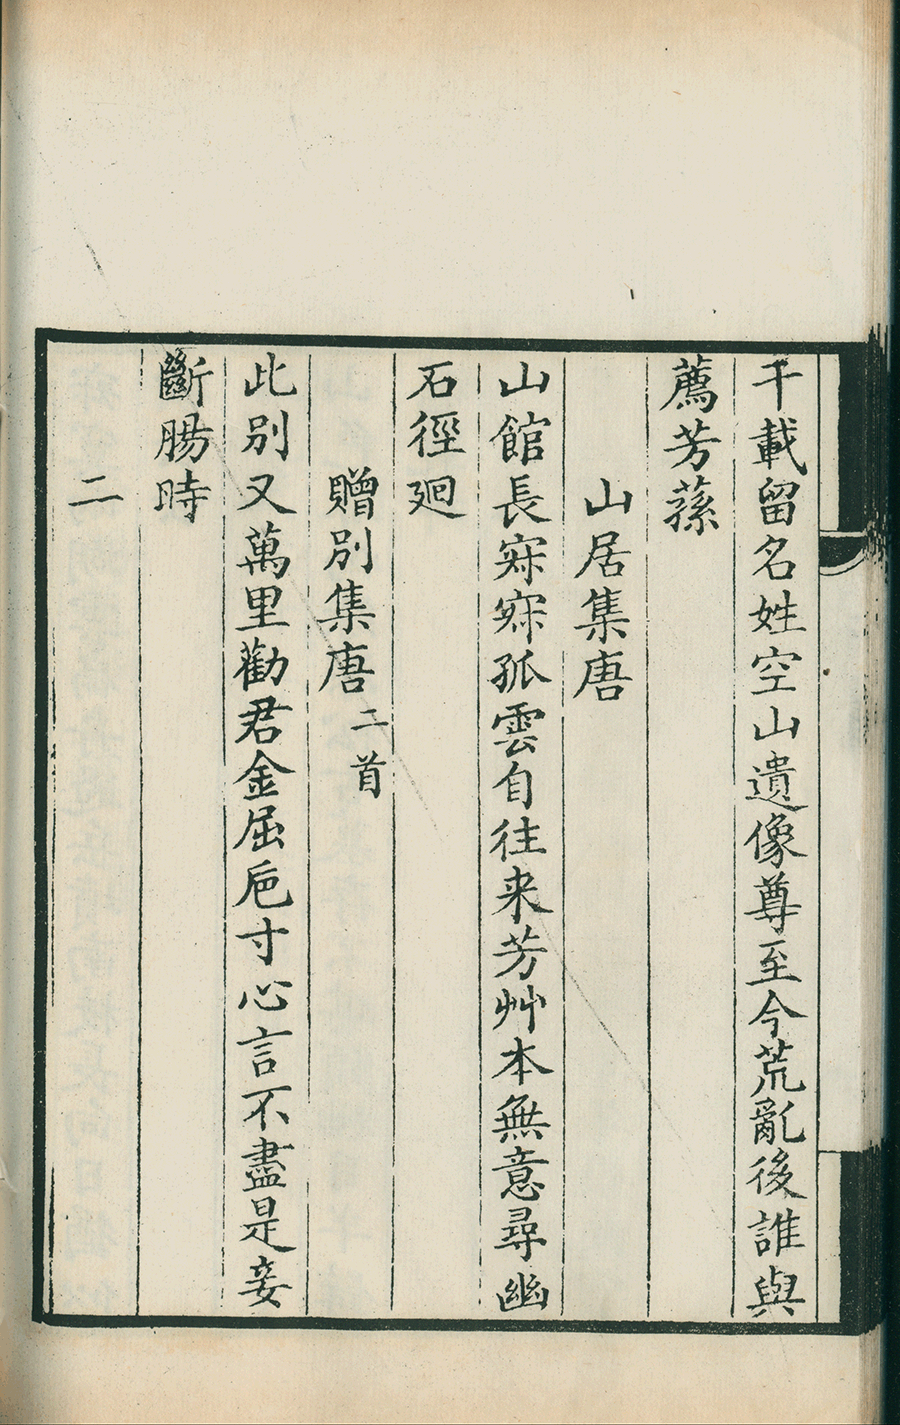 千載留名姓空山遺像尊至今荒亂後誰與
薦芳蓀
山居集唐
山館長寂寂孤雲自往来芳艸本無意尋幽
石徑廻
贈別集唐 二首
此別又萬里勸君金屈卮寸心言不盡是妾
斷腸時
二